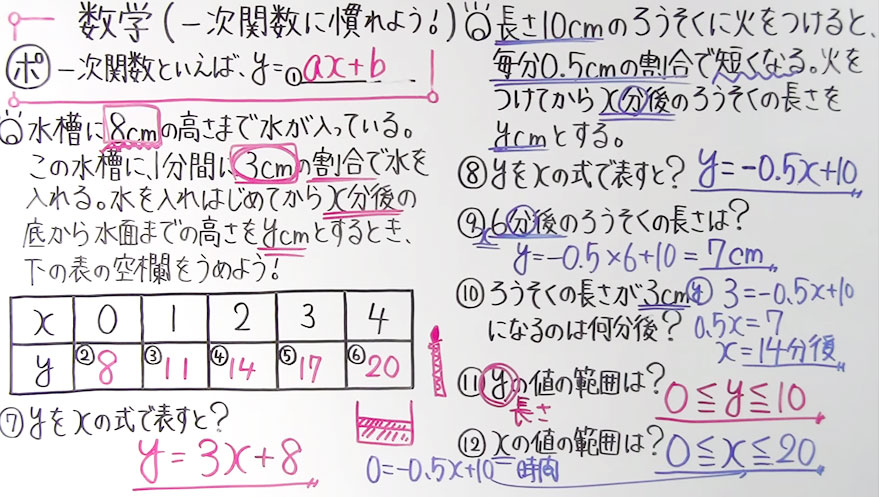 数学(一次関数に慣れよう!)
ポ 一次関数といえば、y=①ax+b
水槽に8cmの高さまで水が入っている。
この水槽に、1分間に3cmの割合で水を
入れる。水を入れはじめてからx分後の
底から水面までの高さをycmとするとき、
下の表の空欄をうめよう!
x 0 1 2 3 4
y ②8 ③11 ④14 ⑤17 ⑥20
⑦yをxの式で表すと?
y=3x+8
長さ10cmのろうそくに火をつけると、
毎分0.5cmの割合で短くなる。火を
つけてからx分後のろうそくの長さを
ycmとする。
⑧yをxの式で表すと? y=-0.5x+10
⑨6分後のろうそくの長さは?
x
y=-0.5×6+10=7cm
⑩ろうそくの長さが3cm y 3=-0.5x+10
になるのは何分後? 0.5x=7
x=14分後
⑪yの値の範囲は? 0≦y≦10
長さ
⑫xの値の範囲は? 0≦x≦20
0=-0.5x+10 時間